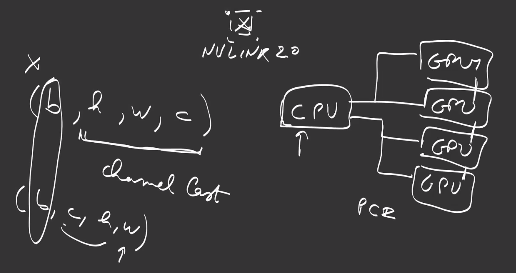 NVLINK 2.0
X
(b, h, w, c)
channel last
(b, c, h, w)
CPU
GPU
GPU
GPU
GPU